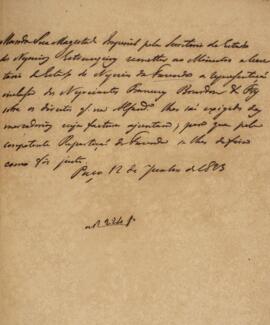 Manda Sua Magestade Imperial pela Secretaria de Estado
de Negocios Estrangeiros remetter ao Ministro e Secre
tario de Estado de Negocios da Fazenda a representação
inclusa dos Negociantes Bourdon & Fry
sobre os direitos q' na Alfandª lhes são exigidos das
mercadorias cuja factura ajuntão; para que pela
competente Repartição da Fazenda se lhes defira
como for justo.
Paço 12 de de 1823